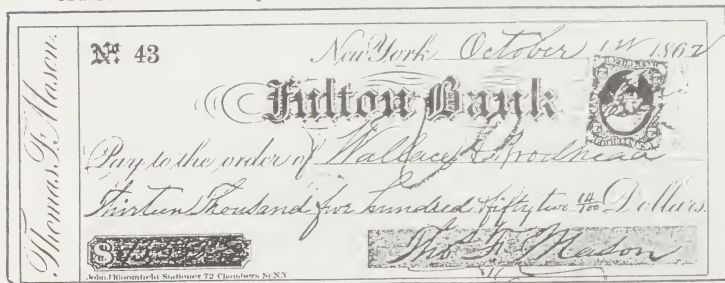 Thomas F. Mason.
No. 43
New York October 1st 1862
Fulton Bank
Pay to the order of Wallace & Brodhead
Thirteen Thousand five hundred & fifty two 14/100 Dollars.
$
Tho F. Mason
John J Bloomfield Stationer 72 Chambers St N.Y.